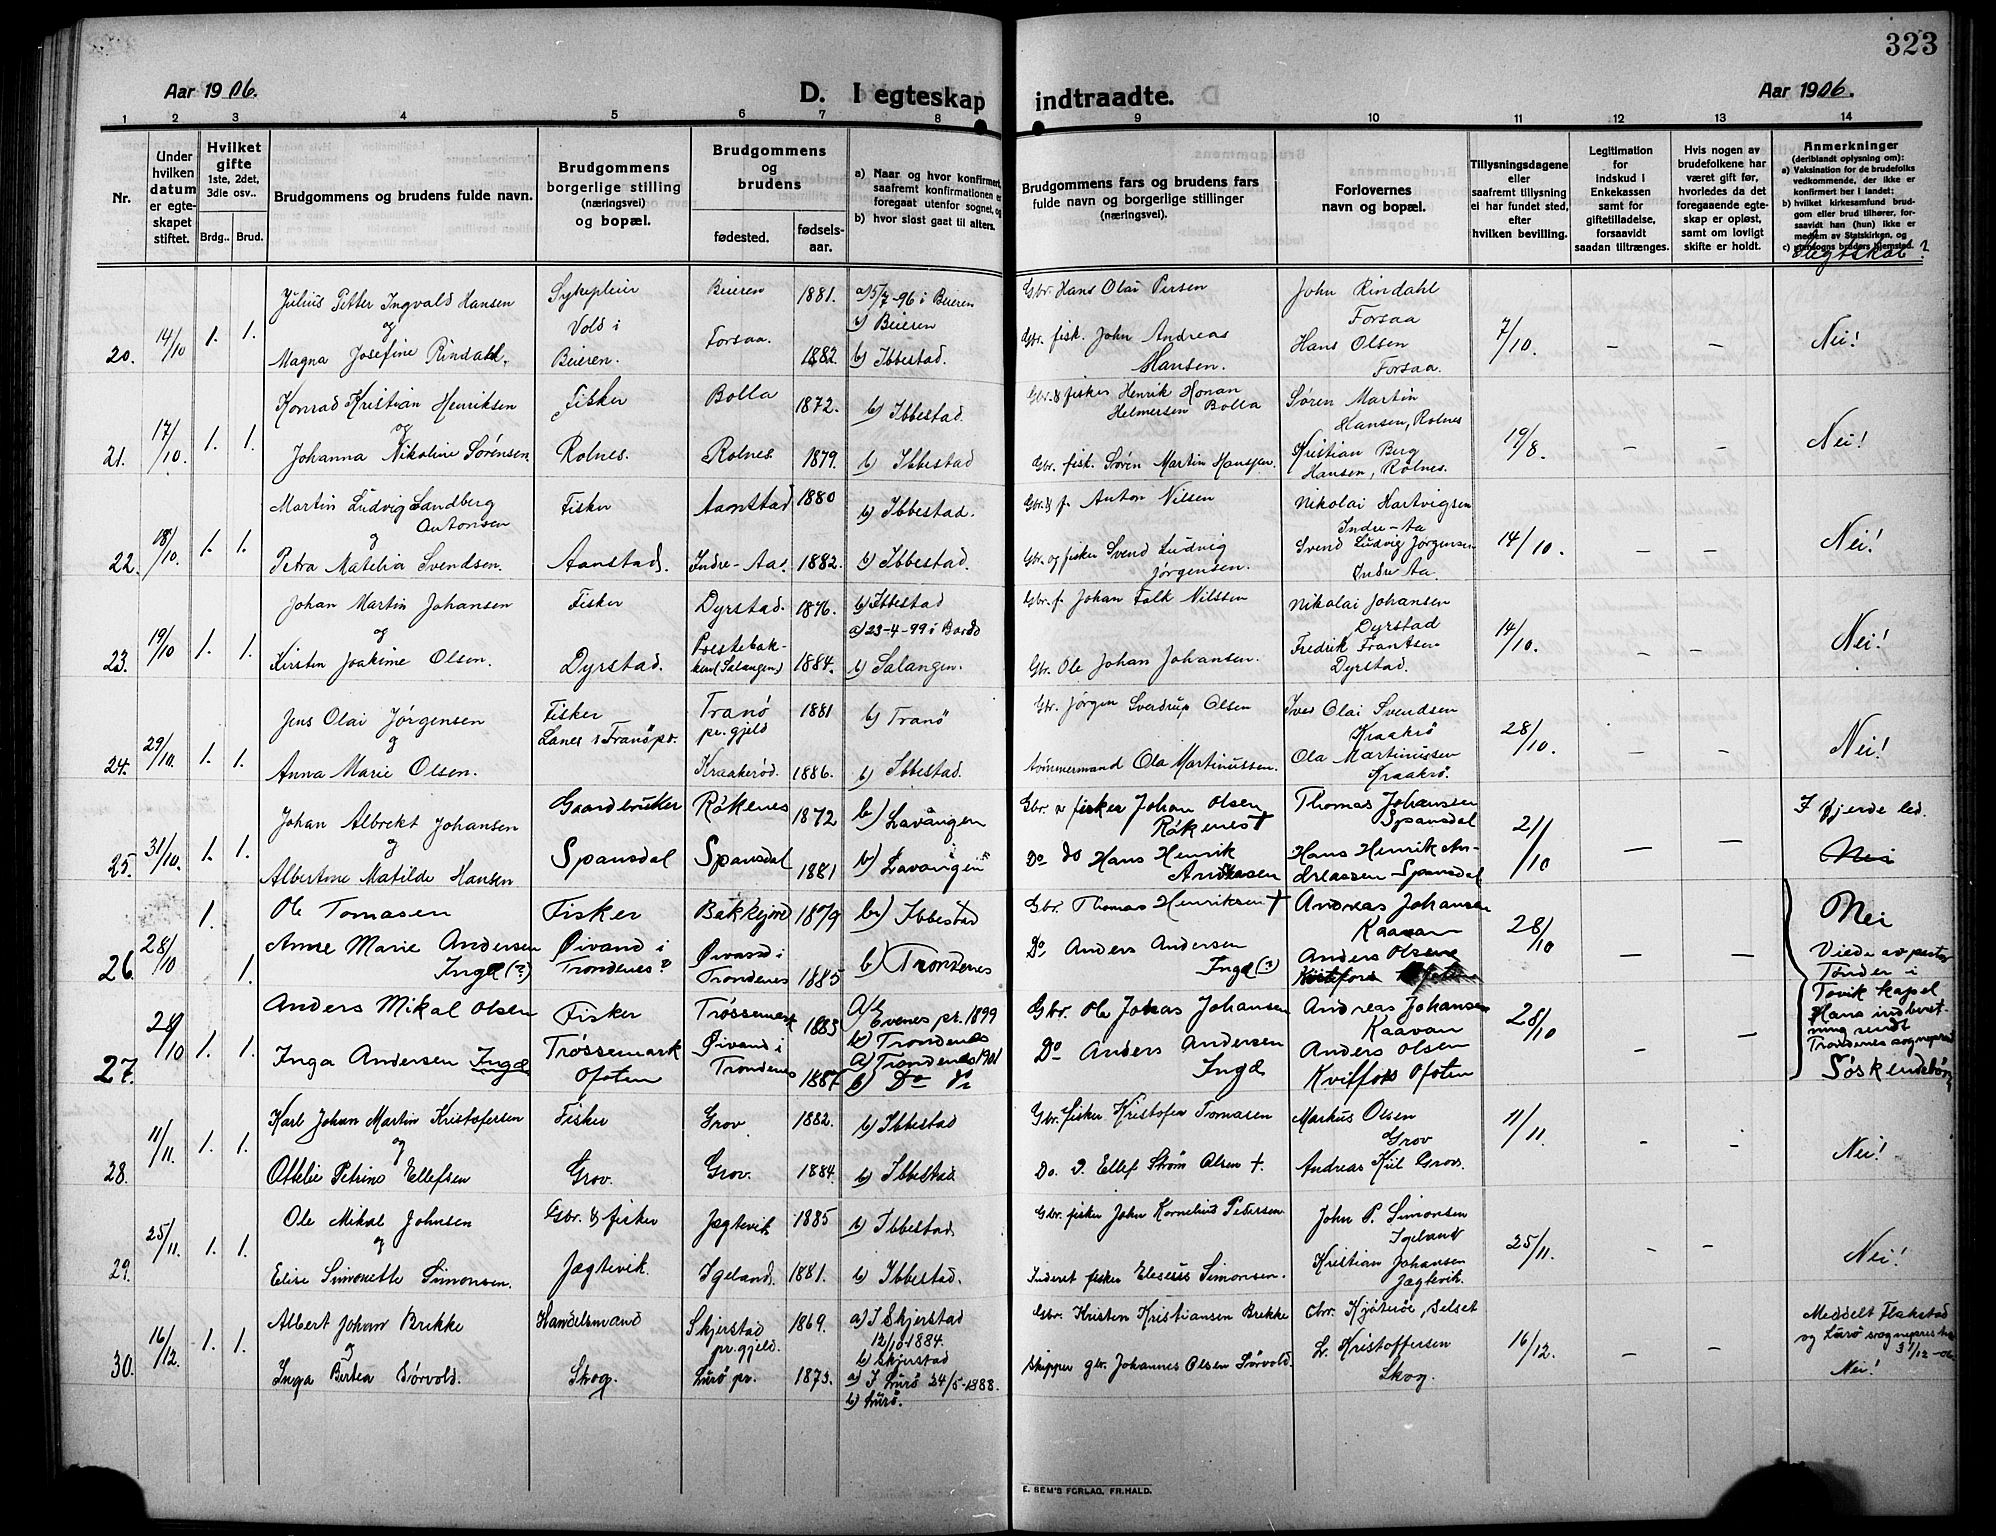 323
Aar 1906.
D. I egteskap indtraadte.
Aar 1906.
1 2 3 4 5 6 7 8 9 10 11 12 13 14
Nr.
Under hvilken datum er egteskapet stiftet.
Hvilket gifte 1ste, 2det, 3die osv..
Brdg.. Brud.
Brudgommens og brudens fulde navn.
Brudgommens borgerlige stilling (næringsvei) og bopæl.
Brudgommens og brudens
fødested. fødselsaar.
a) Naar og hvor konfirmert, saafremt konfirmationen er foregaat utenfor sognet, og
b) hvor sidst gaat til alters.
Brudgommens fars og brudens fars fulde navn og borgerlige stillinger (næringsvei).
Forlovernes navn og bopæl.
Tillysningsdagene eller saafremt tillysning ei har fundet sted, efter hvilken bevilling.
Legitimation for indskud i Enkekassen samt for giftetilladelse, forsaavidt saadan tiltrænges.
Hvis nogen av brudefolkene har været gift før, hvorledes da det foregaaende egteskap er opløst, samt om lovligt skifte er holdt.
Anmerkninger (deriblandt oplysning om):
a) Vaksination for de brudefolks vedkommende, der ikke er konfirmert her i landet:
b) hvilket kirkesamfund brudgom eller brud tilhører, forsaavidt han (hun) ikke er medlem av Statskirken, og
c) utensogns bruders hjemsted.
Slegtskab?
20. 14/10 1. 1.
Julius Petter Ingvald Hansen
og
Magna Josefine Rindahl.
Sykepleier
Vold i
Beieren.
Beieren 1881.
Forsaa. 1882
a) 5/7-96 i Beieren
b) Beieren
b) Ibbestad.
Gbr. Hans Olai Persen
Gbr. fisk. John Andreas
Hansen.
John Rindahl
Forsaa
Hans Olsen
Forsaa.
7/10. – – Nei!
21. 17/10. 1. 1.
Konrad Kristian Henriksen
og
Johanna Nikoline Sørensen
Fisker
Rolnes.
Bolla 1872.
Rolnes 1879.
b) Ibbestad.
b) Ibbestad
Gbr. & fisker Henrik Honan
Helmersen Bolla
Gbr. fisk. Søren Martin Hansen.
Søren Martin
Hansen, Rolnes
Kristian Berg
Hansen, Rolnes.
19/8. – – Nei!
22. 18/10. 1. 1.
Martin Ludvig Sandberg
Antonsen
og
Petra Matelia Svendsen.
Fisker
Aanstad.
Aanstad 1880
Indre-Aa. 1882.
b) Ibbestad.
b) Ibbestad.
Gbr. & f. Anton Nilsen
Gbr. og fisker Svend Ludvig
Jørgensen.
Nikolai Hartvigsen
Indre-Aa
Svend Ludvig Jørgensen
Indre Aa.
14/10. – – Nei!
23. 19/10 1. 1.
Johan Martin Johansen
og
Kirsten Joakime Olsen.
Fisker
Dyrstad.
Dyrstad. 1876.
Prestebakken (Salangen) 1884.
b) Ibbestad
a) 23-4-99 i Bardo
b) Salangen.
Gbr. f. Johan Falk Nilssen
Gbr. Ole Johan Johansen.
Nikolai Johansen
Dyrstad
Fredrik Frantsen
Dyrstad.
14/10. – – Nei!
24. 29/10. 1. 1.
Jens Olai Jørgensen
og
Anna Marie Olsen.
Fisker
Lanes i Tranö pr.
Tranö pr. gjeld 1881
Kraakerød. 1886.
b) Tranö
b) Ibbestad.
Gbr. Jørgen Sverdrup Olsen
tømmermand Ola Martinussen.
Iver Olai Svendsen
Kraakrö
Ola Martinussen
Kraakrö.
28/10. – – Nei!
25. 31/10. 1. 1.
Johan Albrekt Johansen
og
Albertine Matilde Hansen
Gaardbruker
Spansdal
Røkenes 1872
Spansdal 1881
b) Lavangen
b) Lavangen
Gbr. & fisker Johan Olsen
Røkenes †
Do do Hans Henrik
Andreasen
Thomas Johansen
Spansdal
Hans Henrik Andreassen Spansdal
21/10 – –
I fjerde led.
Nei
26. 28/10 1. 1.
Ole Tomasen
Anne Marie Andersen
Inga (?)
Fisker
Øivand i
Trondenes?
Bakkejord 1879
Øivand i
Trondenes 1885
b) Ibbestad
b) Trondenes
Gbr. Thomas Henriksen †
Do Anders Andersen
Inga (?)
Andreas Johansen
Kaavan
Anders Olsen
28/10 – –
Nei
Viede av pastor
Tønder i
Tovik kapel
27. 28/10 1. 1.
Anders Mikal Olsen
Inga Andersen Inga
Fisker
Trøssemark
Ofoten
Trøssemark 1883
Øivand i
Trondenes 1887
a) Evenes pr. 1899
b) Trondenes
a) Trondenes 1901
b) Do
Gbr. Ole Johas Johansen
Do Anders Andersen
Inga
Andreas Johansen
Kaavan
Anders Olsen
Kvitfors Ofoten
28/10 – –
Trondenes sogneprest
Søskendebørn
28. 11/11. 1. 1.
Karl Johan Martin Kristofersen
og
Ottelie Petrine Ellefsen
Fisker
Grov.
Grov 1882.
Grov. 1884.
b) Ibbestad
b) Ibbestad
Gbr. fisker Kristofer Tomasen
Do. D. Ellef Strøm Olsen †.
Markus Olsen
Grov
Andreas Kiil Grov.
11/11. – – Nei!
29. 25/11. 1. 1.
Ole Mikal Johnsen
og
Elise Simonette Simonsen.
Gbr. & fisker
Jægtevik.
Jægtevik 1885
Igeland. 1881.
b) Ibbestad
b) Ibbestad.
Gbr. fisker John Kornelius Petersen
Inderst fisker Eleseus Simonsen.
John P. Simonsen
Igeland
Kristian Johansen
Jægtevik.
25/11. – – Nei!
30. 16/12. 1. 1.
Albert Johan Brekke
og
Inga Bertea Sörvold.
Handelsmand
Skog.
Skjerstad pr. gjeld. 1869.
Lurö pr. 1873.
a) I Skjerstad
12/10 1884.
b) Skjerstad
a) I Lurö 24/5-1888.
b) Lurö.
Gbr. Kristen Kristiansen Brekke
Skipper gbr. Johannes Olsen Sörvold.
Chr. Kjöteröe, Selset
L. Kristoffersen
Skog.
16/12. – –
Meddelt Flakstad
og Lurö sogneprester
31/12-06
Nei!
E. SEM'S FORLAG, FR.HALD.